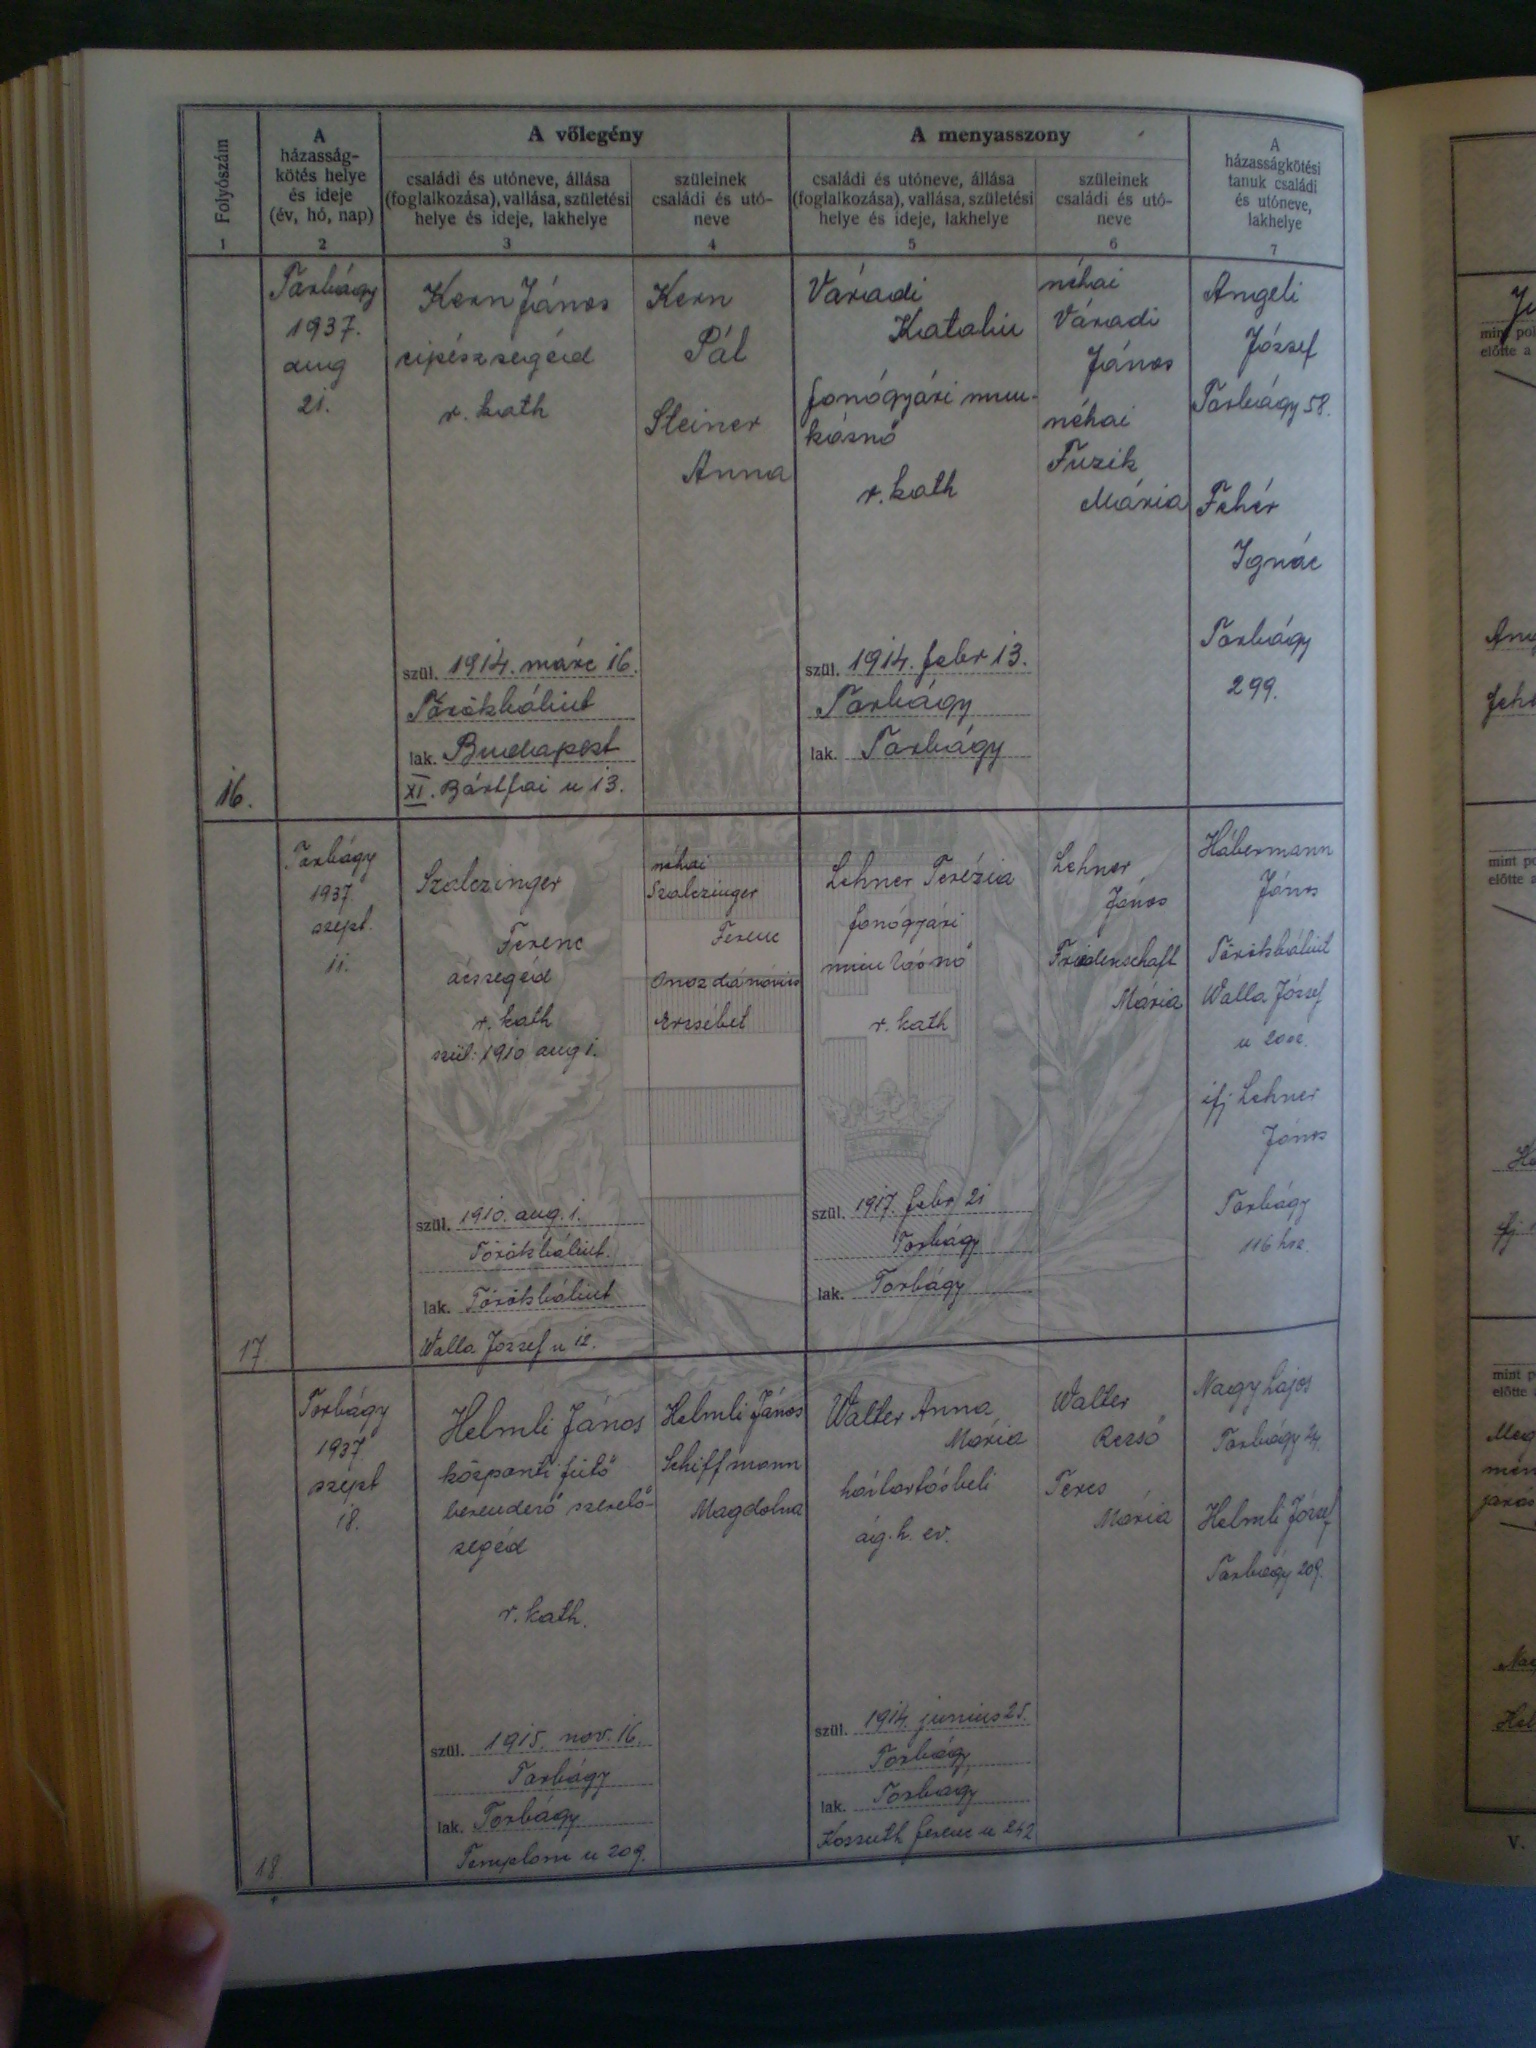 Folyószám
1
A
házasság-
kötés helye
és ideje
(év, hó, nap)
2
A vőlegény
családi és utóneve, állása
(foglalkozása), vallása, születési
helye és ideje, lakhelye
3
szüleinek
családi és utó-
neve
4
A menyasszony
családi és utóneve, állása
(foglalkozása), vallása, születési
helye és ideje, lakhelye
5
szüleinek
családi és utó-
neve
6
A
házasságkötési
tanuk családi
és utóneve,
lakhelye
7
16.
Torbágy
1937.
aug
21.
Kern János
cipészsegéd
r. kath
szül. 1914. márc 16.
Törökbálint
lak. Budapest
XI. Bártfai u 13.
Kern
Pál
Steiner
Anna
Váradi
Katalin
fonógyári mun-
kásnő
r. kath
szül. 1914. febr 13.
Torbágy
lak. Torbágy
néhai
Váradi
János
néhai
Fuzik
Mária
Angeli
József
Torbágy 58.
Fehér
Ignác
Torbágy
299.
17.
Torbágy
1937
szept.
11.
Szalczinger
Ferenc
ácssegéd
r. kath
szül: 1910 aug 1.
szül. 1910. aug. 1.
Törökbálint.
lak. Törökbálint
Walla József u 12.
néhai
Szalczinger
Ferenc
Erzsébet
Lehner Terézia
fonógyári
munkásnő
r. kath
szül. 1917. febr 21
Torbágy
lak. Torbágy
Lehner
János
Friedenschaft
Mária
Hábermann
János
Törökbálint
Walla József
u
ifj Lehner
János
Torbágy
116 hsz.
18.
Torbágy
1937
szept
18.
Helmli János
központi fűtő
berendező szerelő-
segéd
r. kath.
szül. 1915. nov. 16.
Torbágy
lak. Torbágy
Templom u 209.
Helmli János
Schiffmann
Magdolna
Walter Anna
Mária
háztartásbeli
ág. h. ev.
szül. 1914. junius 25.
Torbágy
lak. Torbágy
Kossuth Ferenc u 242
Walter
Rezső
Teres
Mária
Nagy Lajos
Torbágy
Helmli József
Torbágy 209.
mint
előtte a
mint po
előtte a
mint p
előtte
V.